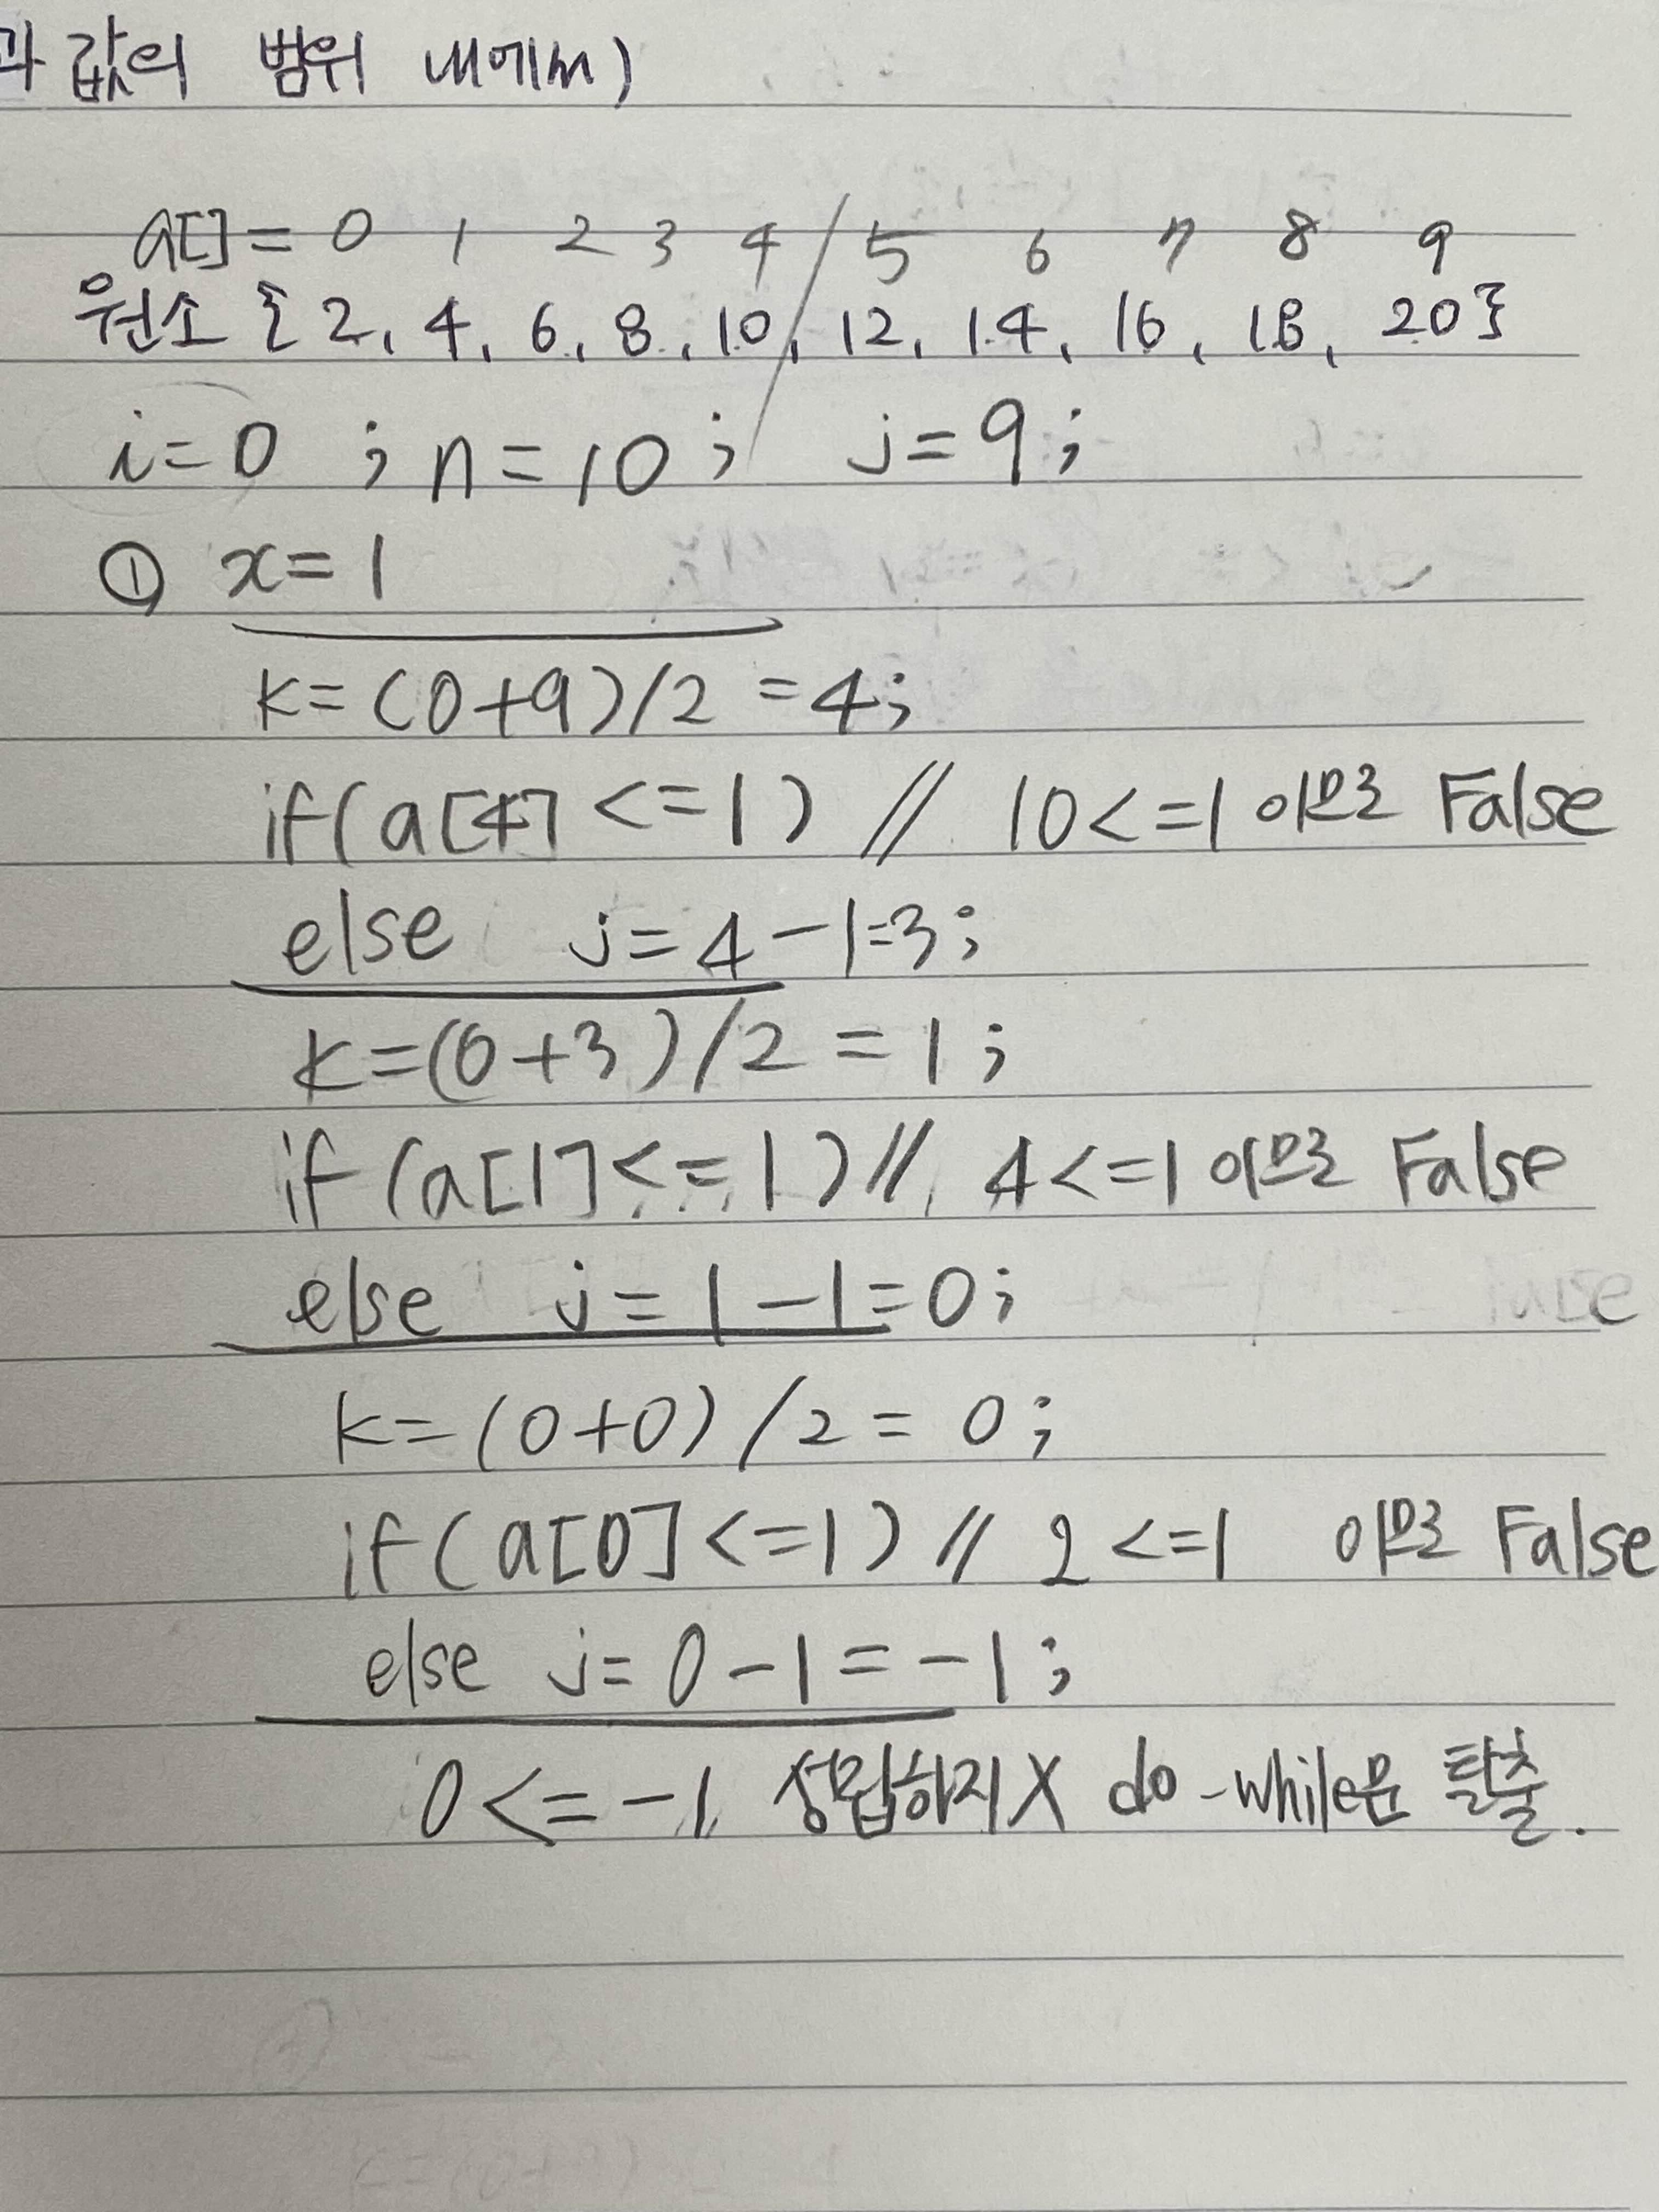 과 값의 범위 내에서)
a[] = 0 1 2 3 4 / 5 6 7 8 9
원소 { 2, 4, 6, 8, 10, 12, 14, 16, 18, 20 }
i=0 ; n=10 ; j=9 ;
① x=1
k=(0+9)/2 =4;
if(a[4] <=1) // 10<=1 이므로 False
else j=4-1=3;
k=(0+3)/2 = 1 ;
if (a[1]<=1)// 4<=1 이므로 False
else j=1-1=0;
k=(0+0)/2= 0 ;
if(a[0]<=1) // 2<=1 이므로 False
else j=0-1=-1 ;
0<=-1 성립하지X do-while문 탈출.